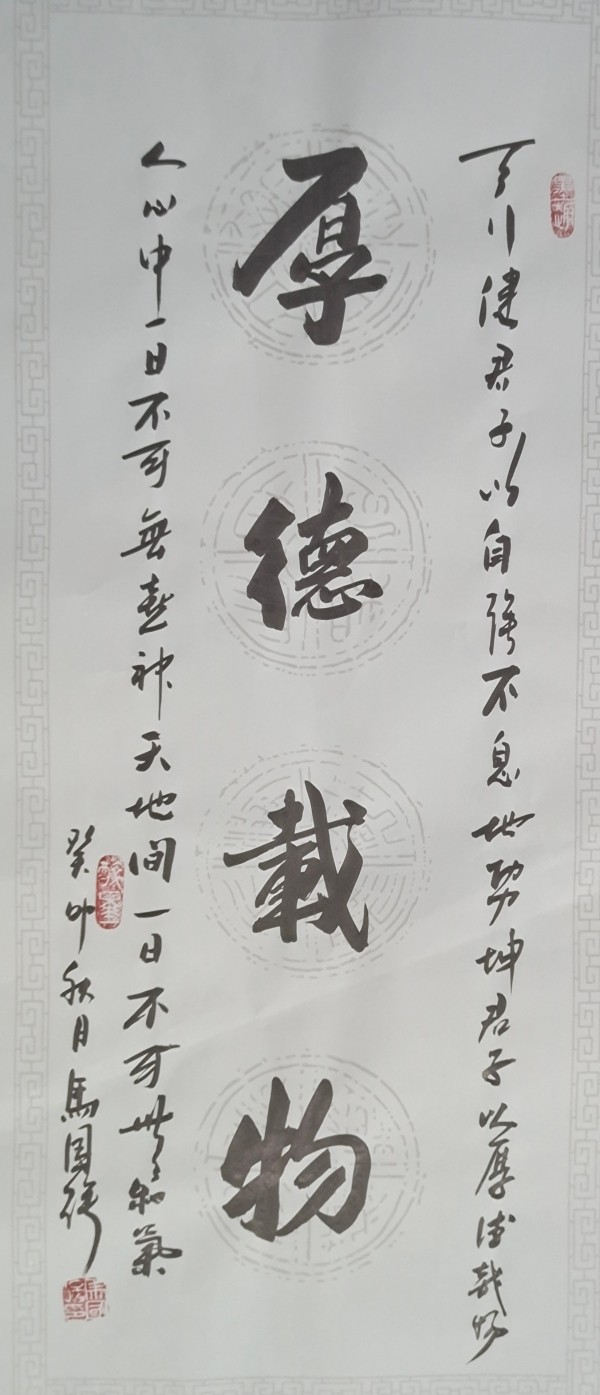 天行健君子以自强不息地势坤君子以厚德载物
厚德載物
人心中一日不可無喜神天地间一日不可無和氣
癸卯秋月馬国强